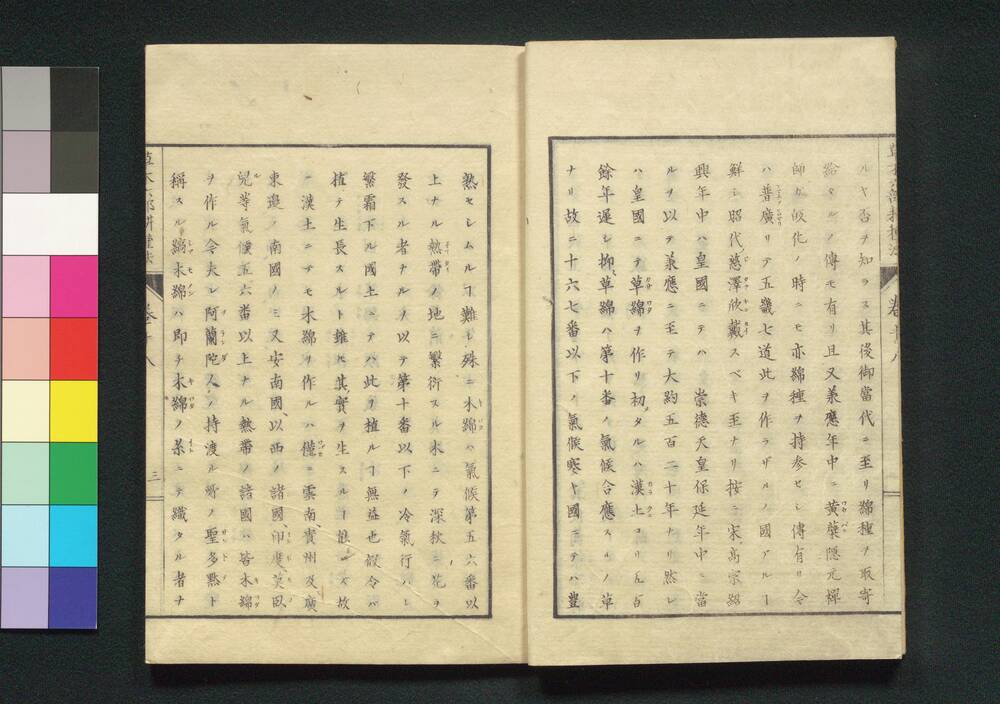 ルヤ否ヲ知ラス其後御當代ニ至リ綿種ヲ取寄
給タルノ傳モ有リ且又兼應年中ニ黄檗隠元禪
師カ皈化ノ時ニモ亦綿種ヲ持参セシ傳有リ今
ハ普廣リテ五畿七道此ヲ作ラザルノ國アルヿ
鮮シ昭代ノ慈澤欣戴スベキ至ナリ按ニ宋高宗紹
興年中ハ皇國ニテハ 崇德天皇保延年中ニ當
ルヲ以テ兼應ニ至テ大約五百二十年ナリ然レ
ハ皇國ニテ草綿ヲ作リ初タルハ漢土ヨリ五百
餘年遲シ抑草綿ハ第十番ノ氣候合應スルノ草
ナリ故ニ十六七番以下ノ氣候寒キ國ニテハ豊
熟セシムルヿ難シ殊ニ木綿ハ氣候第五六番以
上ナル熱帶ノ地ニ繁衍スル木ニテ深秋ニ花ヲ
發スル者ナルヲ以テ第十番以下ノ冷氣行ハレ
繁霜下ル國土ニテハ此ヲ植ルヿ無益也假令ハ
植テ生長スルト雖ヒ其實ヲ生スルヿ能ハズ故
ニ漢土ニテモ木綿ヲ作ルハ僅ニ雲南貴州及廣
東邊ノ南國ノミ又安南國以西ノ諸國印度莫臥
兒等氣候五六番以上ナル熱帶ノ諸國ハ皆木綿
ヲ作ル今夫レ阿蘭陀人ノ持渡ル所ノ聖多黙ト
稱スル縞木綿ハ即チ木綿ノ糸ニテ織タル者ナ
草木六部耕種法 卷十八 三